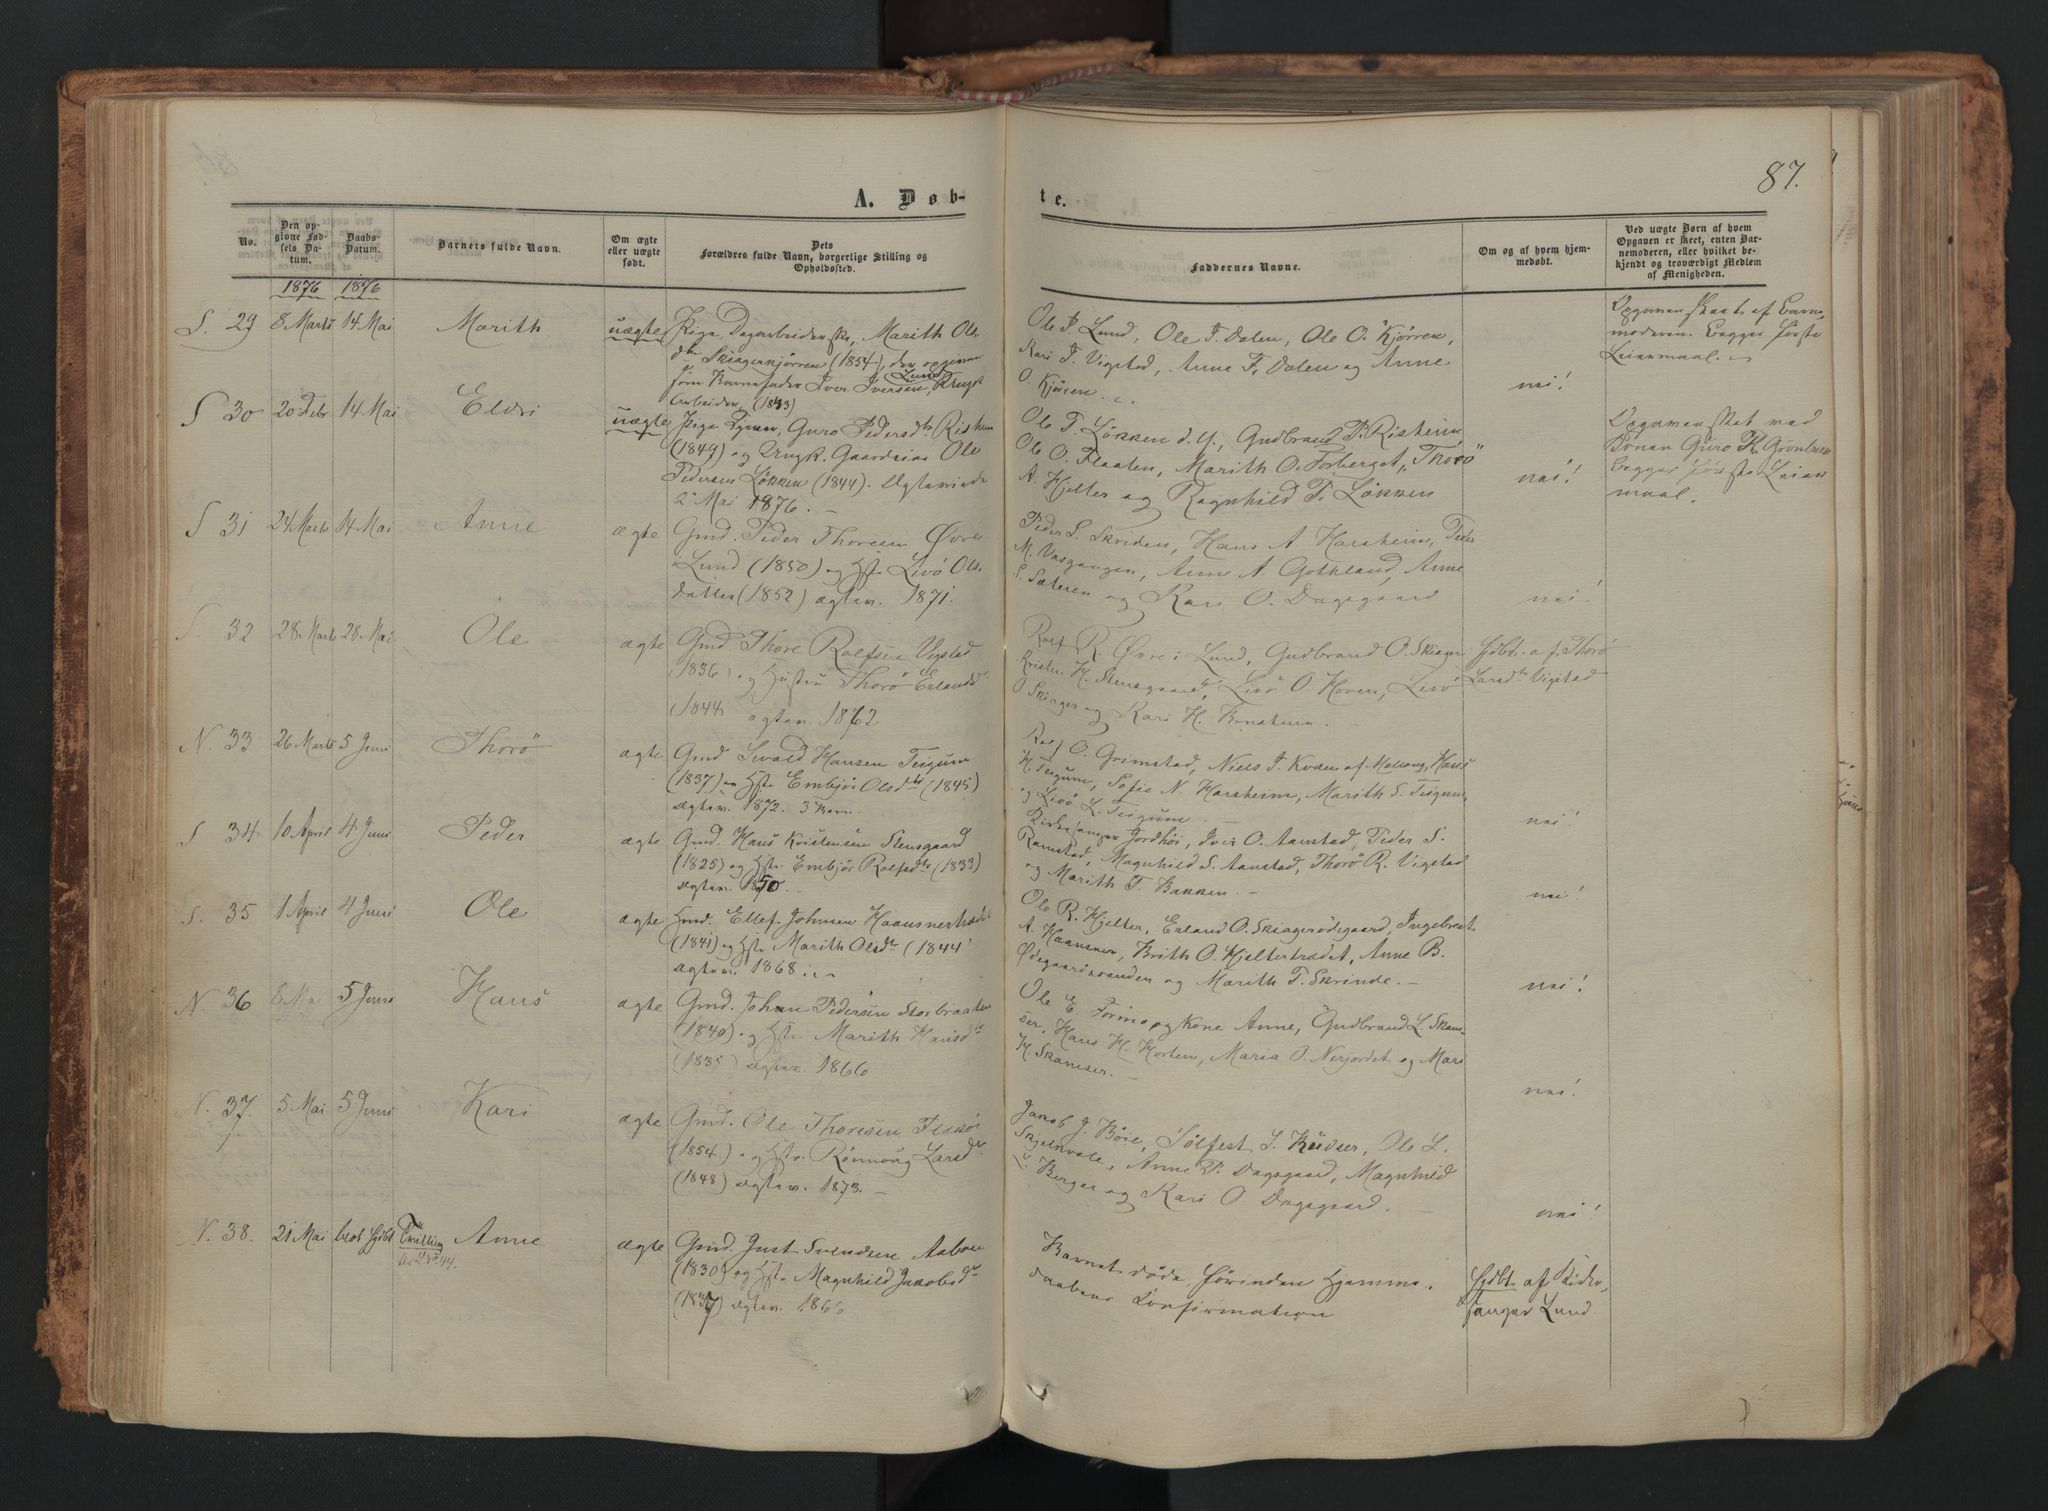 87.
A. Døbte.
No.
Den opgivne Fødsels Datum.
Daabs-Datum.
Barnets fulde Navn.
Om ægte eller uægte født.
Dets Forældres fulde Navn, borgerlige Stilling og Opholdssted.
Faddernes Navne.
Om og af hvem hjemmedøbt.
Ved uægte Børn af hvem Opgaven er skeet, enten Barnemoderen, eller hvilket bekjendt og troværdigt Medlem af Menigheden.
1876 1876
S. 29 8 Marts 14 Mai Marith uægte Pige Marith Ols-
dtr Skiagerkjørren (1854), den opgivne
Barnefader Iver Iversen Lund, Ungk.
Arbeider, (1833)
Ole P. Lund, Ole T. Dalen, Ole O. Kjørren,
Kari T. Vigstad, Anne F. Dalen og Anne
O. Kjørren.
nei!
Opgaven skeet af Barne-
moderen. Begges første
Leiermaal.
S 30 20 Febr 14 Mai Eldri uægte Pige Guro Pedersdtr Risheim
(1849) og Ungk. Ole
Pedersen Løkken (1844). Ægteviede
2 Mai 1876.
Ole T. Løkken d. y., Gudbrand P. Risheim
Ole O. Flaaten, Marith O. Forberget, Thorö
A. Hjelter og Ragnhild T. Løkken
nei!
Opgaven skeet ved
Konen Guro
begges første Leier-
maal.
S 31 24 Marts 14 Mai Anne ægte Gmd. Peder Thoresen Øvre
i Lund (1850) og Hstr Livö Ols-
datter (1852) ægtev. 1871.
Peder S. Skriden, Hans A. Harsheim, Peder
M. Vasgangen, Anne A. Gothland, Anne
S. Sæteren og Kari O. Dagsgaard
nei!
S. 32 28 Marts 28 Mai Ole ægte Gmd Thore Rolfsen Vigstad
(1836) og Hustru Thorö Erlandsdtr
(1844 ægtev. 1862
Rolf R. Øvre i Lund, Gudbrand O. Skiager
Kristen H. Stensgaard, Livö O. Hoven, Livö
O. Skiager og Kari H.
Hdbt. af Thorö
Larsdtr Vigstad
N. 33 26 Marts 5 Juni Thorö ægte Gmd Sivald Hansen Teigum
(1837) og Hstr Embjør Olsdtr (1845)
ægtev. 1872. 3 Barn.
Rolf O. Grimstad, Niels J. Kvden af Hans
H. Teigum, Sofie N. Harsheim, Marith S. Teigum
og Livö L. Teigum.
nei!
S 34 10 April 4 Juni Peder ægte Gmd. Hans Kristensen Stensgaard
(1825) og Hstr. Embjør Rolfsdtr (1833)
ægtev. 1850.
Kirkesanger Jordhöi, Iver O. Aanstad, Peder S.
Ramstad, Magnhild S. Aanstad, Thorö R. Vigstad
og Marith T. Bakken.
nei!
S. 35 1 April 4 Juni Ole ægte Hmd. Ellef Johnsen
(1841) og Hstr Marith Olsdtr (1844)
ægtev. 1868.
Ole R. Hjelter, Erland O. Skiagerødegaard, Ingebret
A. Haansner, Brith O. Hjeltertrædet, Anne B.
og Marith T. Skrinde.
nei!
N. 36 8 Mai 5 Juni Hans ægte Gmd. Johan Pedersen Storbraaten
(1840) og Hstr. Marith Hansdtr
(1835) ægtev. 1866
Ole E. Formo og Kone Anne, Gudbrand L. Skam-
ser, Hans H. Horten, Maria O. Nerjordet og Mari
H. Skamser.
nei!
N. 37. 5 Mai 5 Juni Kari ægte Gmd. Ole Thoresen
(1854) og Hstr. Rønnoug Larsdtr
(1848) ægtev. 1873.
Jakob J. Böie, Sølfest S. Rudser, Ole L.
Skjelkvale, Anne P. Dagsgaard, Magnhild
L. Berger og Kari O. Dagsgaard.
nei!
N. 38. 21 Mai blot Hjdbt Tvilling
Anne ægte Gmd. Just Svendsen Aaboen
(1830) og Hstr Magnhild Jakobsdtr
(1837) ægtev. 1866
Barnet døde førinden Hjemme-
daabens Confirmation
Hjdbt af Kirke-
sanger Lund.